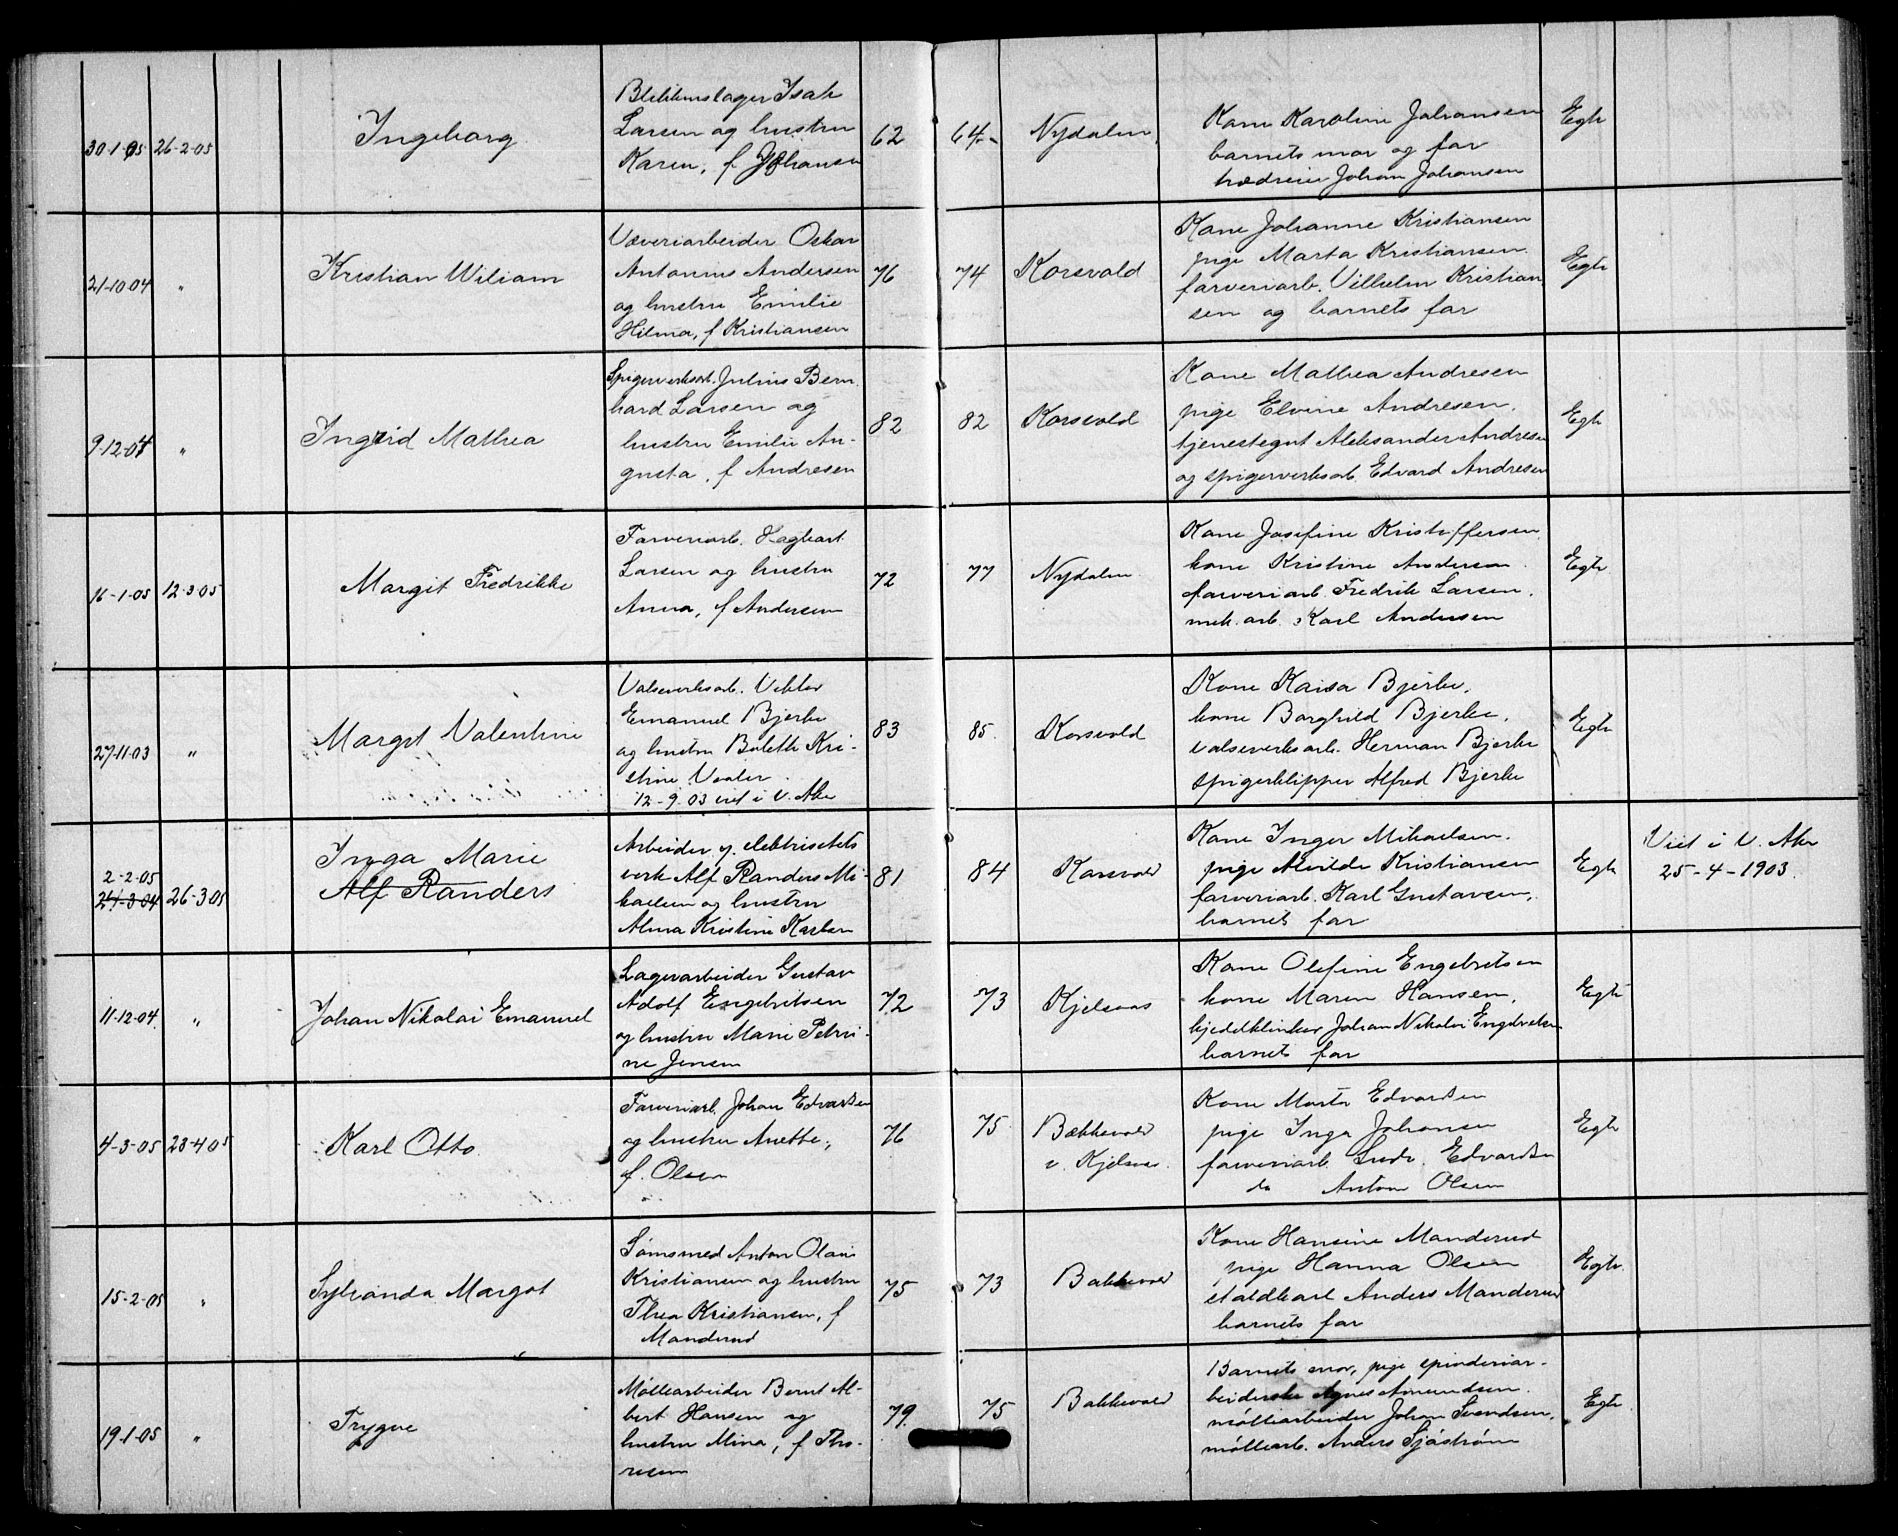 30-1-05 26-2-05 Ingeborg
Blikkenslager Isak
Larsen og hustru
Karen, f. Johansen
62 64 Nydalen
Kone Karoline Johansen
barnets mor og far
Johan Johansen
Egte
21-10-04 " Kristian Wiliam
Væveriarbeider Oskar
Antonius Andersen
og hustru Emilie
Hilma, f Kristiansen
76 74 Korsvold
Kone Johanne Kristiansen
pige Marta Kristiansen
farveriarb. Vilhelm Kristian
sen og barnets far
Egte
9-12-04 " Ingrid Mathea
Spigerverksarb. Julius Bern
hard Larsen og
hustru Emilie Au-
gusta, f Andresen
82 82 Korsvold
Kone Mathea Andresen
pige Elvine Andresen,
tjenestegut Aleksander Andresen
og spigerverksarb. Edvard Andresen
Egte
16-1-05 12-3-05 Margit Fredrikke
Farveriarb. Hagbart
Larsen og hustru
Anna, f Andersen
72 77 Nydalen
Kone Josefine Kristoffersen
kone Kristine Anderson
farveriarb. Fredrik Larsen,
mek. arb. Karl Andersen
Egte
27-11-03 " Margit Valentine
Valseverksarb. Viktor
Emanuel Bjerke
og hustru Bolette Kri-
stine Vaaler.
12-9-03 viet i V. Aker
83 85. Korsvold
Kone Kaisa Bjerke,
kone Borghild Bjerke,
valseverksarb. Herman Bjerke
spigerklipper Alfred Bjerke
Egte
2-2-05
21-3-04 26-3-05
Inga Marie
Alf Randers
Arbeider v. elektrisitets
verk Alf Randers Mi-
kaelsen og hustru
Alma Kristine Karlsen
81 84 Korsvold
Kone Inger Mikaelsen.
pige Alvilde Kristiansen
farveriarb. Karl Gustavsen,
barnets far
Egte
Viet i V. Aker
25-4-1903.
11-12-04 " Johan Nikolai Emanuel
Lagerarbeider Gustav
Adolf Engebritsen
og hustru Marie Petri-
ne Jensen
72 73 Kjelsaas
Kone Olefine Engebretsen
kone Maren Hansen,
kjedelklinker Johan Nikolai Engebretsen
barnets far
Egte
4-3-05 23-4-05 Karl Otto
Farveriarb. Johan Edvardsen
og hustru Anette,
f. Olsen
76 75 Bakkevold
v. Kjelsaas.
Kone Marta Edvardsen
pige Inga Johansen
farveriarb. Ludv. Edvardsen
do Anton Olsen
Egte
15-2-05 " Sylvanda Margot
Sømsmed Anton Olaus
Kristiansen og hustru
Thea Kristiansen, f
Manderud
75 73 Bakkevold
Kone Hansine Manderud
pige Hanna Olsen
staldkarl Anders Manderud
barnets far
Egte
19-1-05 " Trygve
Møllearbeider Bernt Al-
bert Hansen og
hustru Mina, f Tho-
resen
79. 75 Bakkevold
Barnets mor, pige spinderiar-
beiderske Agnes Amundsen.
møllearbeider Johan Svendsen,
møllearb. Anders Sjøstrøm
Egte